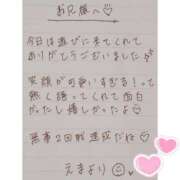 お兄様へ♡
今日は遊びに来てくれて
ありがとうございました
笑顔が可愛いすぎる!って
熱く語ってくれて面白
かったし嬉しかったよ
無事2回戦達成だね♡
えまより